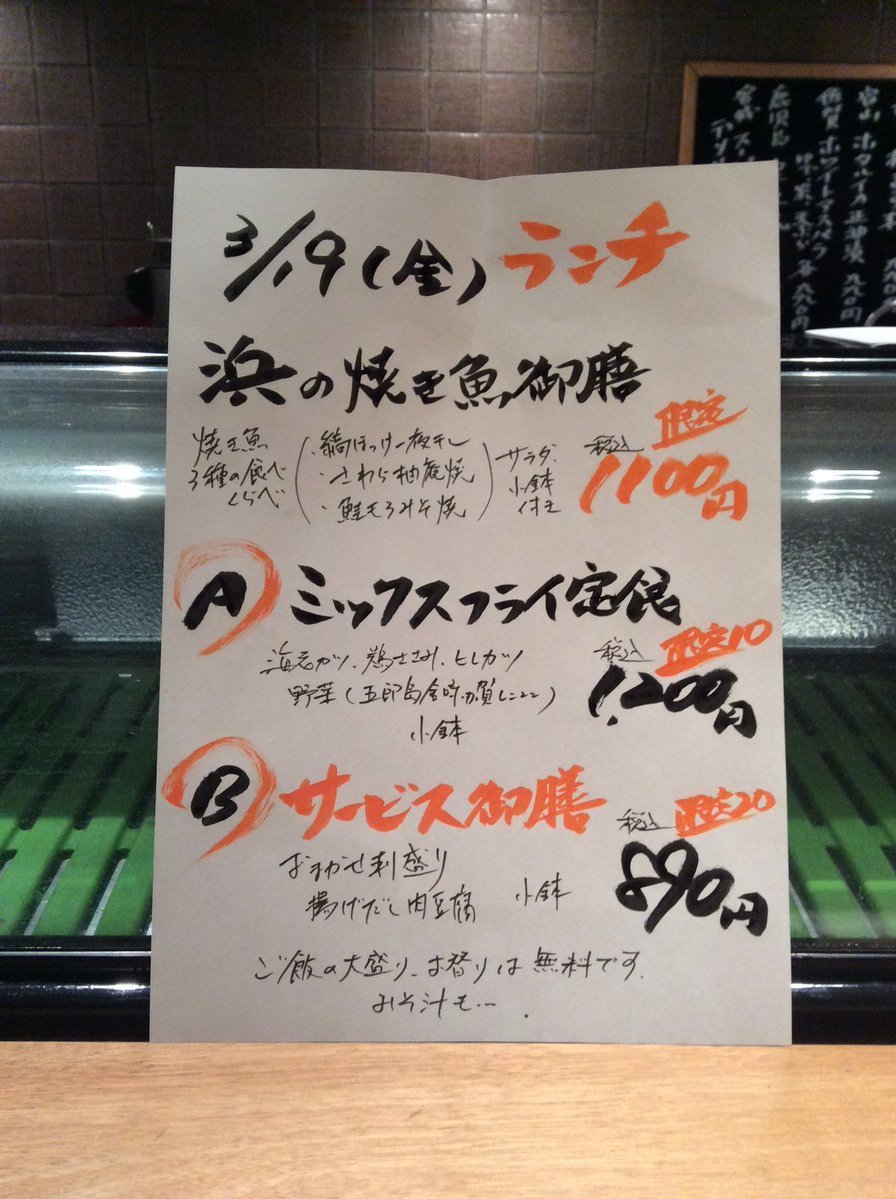 3/19(金) ランチ
浜の焼き魚御膳
焼き魚
3種の食べ
くらべ
・縞ほっけ一夜干し
・さわら柚庵焼
・鮭もろみそ焼
サラダ・
小鉢
付き
税込 限定
1100円
A ミックスフライ定食
海老カツ、鶏ささみ、ヒレカツ
野菜(五郎島金時・加賀レンコン)
小鉢
税込 限定10
1,200円
B サービス御膳
おまかせ刺盛り
揚げだし肉豆腐 小鉢
税込 限定20
890円
ご飯の大盛り、お替りは無料です。
みそ汁も…
富山 ホタルイカ
佐賀 ホワイトアスパラ
鹿児島
宮城